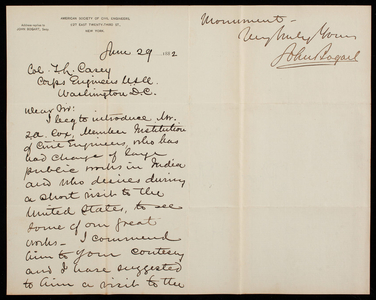 AMERICAN SOCIETY OF CIVIL ENGINEERS,
127 EAST TWENTY-THIRD ST.,
NEW YORK.
JOHN BOGART, Secy.
June 29 1882
Col. T. L. Casey
Corps Engineers U.S.A.
Washington D.C.
Dear Sir:
I beg to introduce Mr.
Cox, Member Institution
of Civil Engineers, who has
had charge of large
public works in India
and who desires during
a short visit to the
United States, to see
some of our great
works — I commend
him to your courtesy
and I have suggested
to him a visit to the
Monument —
Very truly Yours
John Bogart